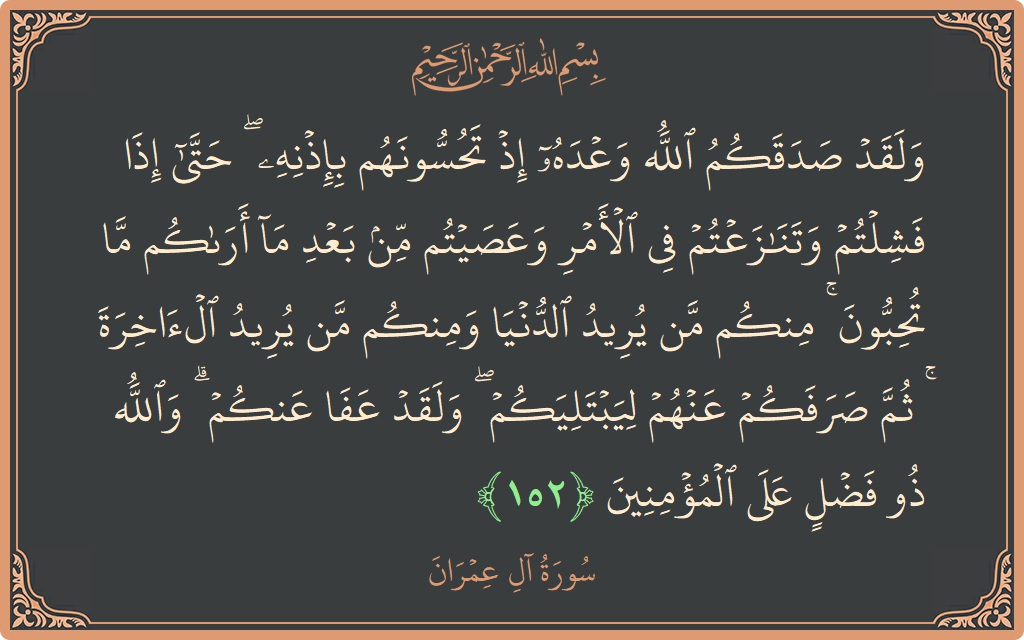 بِسْمِ اللَّهِ الرَّحْمَٰنِ الرَّحِيمِ
وَلَقَدْ صَدَقَكُمُ ٱللَّهُ وَعْدَهُۥٓ إِذْ تَحُسُّونَهُم بِإِذْنِهِۦ ۖ حَتَّىٰٓ إِذَا
فَشِلْتُمْ وَتَنَـٰزَعْتُمْ فِى ٱلْأَمْرِ وَعَصَيْتُم مِّنۢ بَعْدِ مَآ أَرَىٰكُم مَّا
تُحِبُّونَ ۚ مِنكُم مَّن يُرِيدُ ٱلدُّنْيَا وَمِنكُم مَّن يُرِيدُ ٱلْـَٔاخِرَةَ
ۚ ثُمَّ صَرَفَكُمْ عَنْهُمْ لِيَبْتَلِيَكُمْ ۖ وَلَقَدْ عَفَا عَنكُمْ ۗ وَٱللَّهُ
ذُو فَضْلٍ عَلَى ٱلْمُؤْمِنِينَ ﴿١٥٢﴾
سُورَةُ آلِ عِمْرَانَ